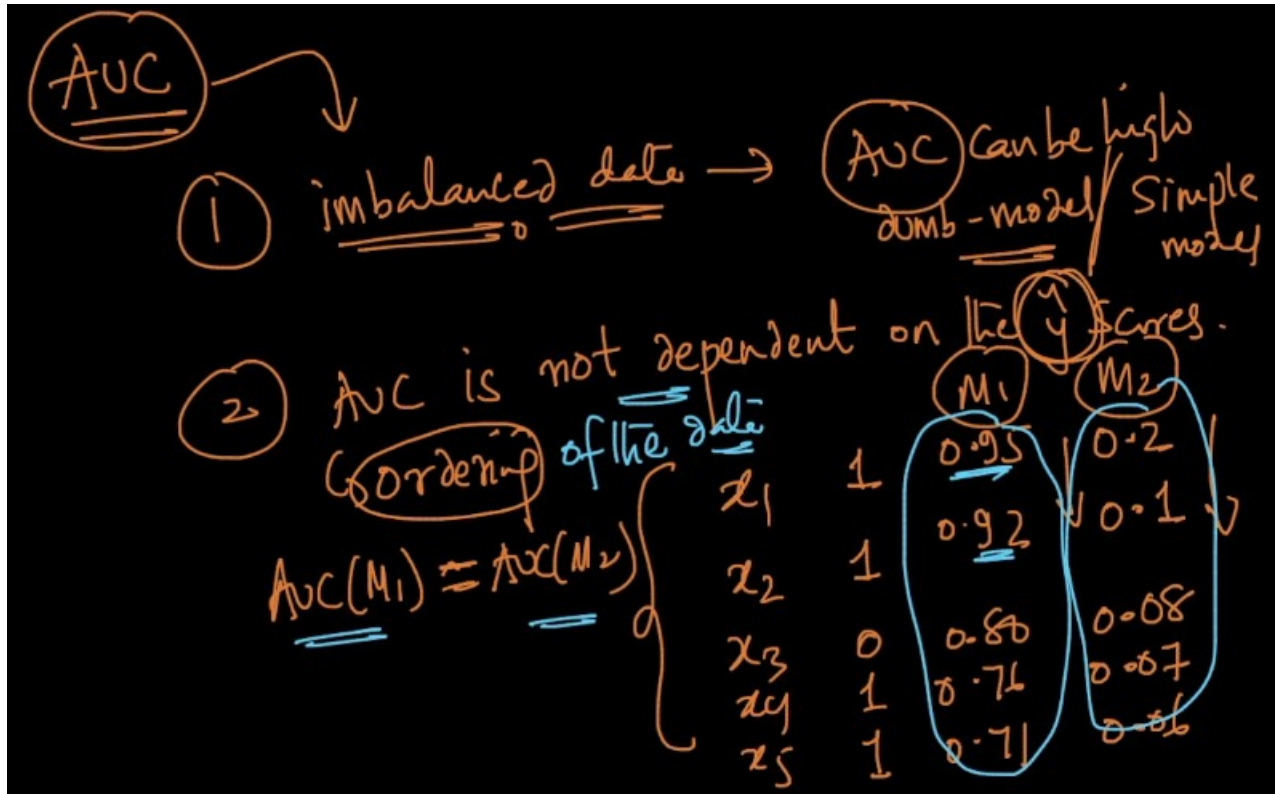 AUC
① imbalanced data → AUC can be high
dumb-model / Simple model
② AUC is not dependent on the ŷ scores.
↳ ordering of the data
M1 M2
x1 1 0.95 0.2
x2 1 0.92 0.1
x3 0 0.80 0.08
x4 1 0.76 0.07
x5 1 0.71 0.06
AUC(M1) = AUC(M2)